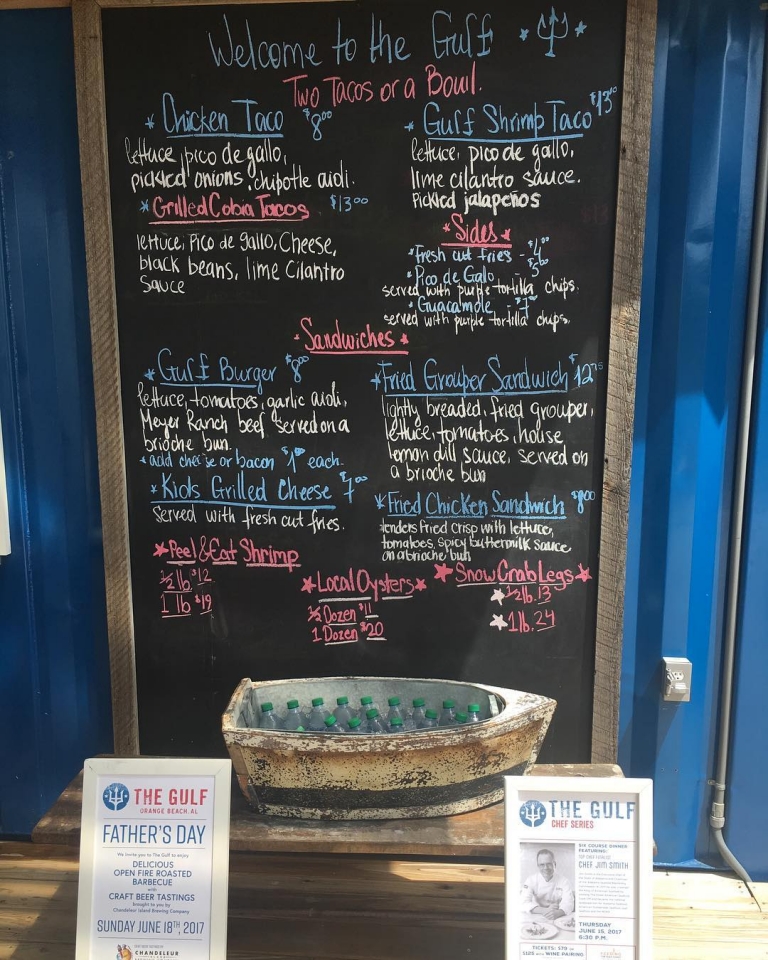 Welcome to the Gulf
Two Tacos or a Bowl.
Chicken Taco $8.00
lettuce, pico de gallo,
pickled onions, chipotle aioli.
Grilled Cobia Tacos $13.00
lettuce, Pico de gallo, Cheese,
black beans, lime Cilantro
Sauce
Gulf Shrimp Taco $13.00
lettuce, pico de gallo,
lime cilantro sauce.
Pickled jalapeños
Sides
Fresh cut fries -
Pico de Galo
served with purple tortilla chips.
Guacamole - $7
served with purple tortilla chips.
Sandwiches
Gulf Burger $8.00
lettuce, tomatoes, garlic aioli,
Meyer Ranch beef served on a
brioche bun.
add cheese or bacon $1.00 each.
Kids Grilled Cheese $7.00
Served with fresh cut fries.
Fried Grouper Sandwich $12.75
lightly breaded, fried grouper,
lettuce, tomatoes, house
lemon dill sauce, served on
a brioche bun
Fried Chicken Sandwich $8.00
tenders fried crisp with lettuce,
tomatoes, spicy buttermilk sauce
on a brioche bun
Peel & Eat Shrimp
1/2 lb $12
1 lb $19
Local Oysters
1/2 Dozen $11
1 Dozen $20
Snow Crab Legs
1/2 lb. 13
1 lb. 24
THE GULF
ORANGE BEACH, AL
FATHER'S DAY
We invite you to The Gulf to enjoy
DELICIOUS
OPEN FIRE ROASTED
BARBECUE
with
CRAFT BEER TASTINGS
brought to you by
Chandeleur Island Brewing Company
SUNDAY JUNE 18TH, 2017
CHANDELEUR
THE GULF
CHEF SERIES
SIX COURSE DINNER
FEATURING:
CHEF JIM SMITH
THURSDAY
JUNE 15, 2017
6:30 P.M.
TICKETS: $79 or
$125 with WINE PAIRING